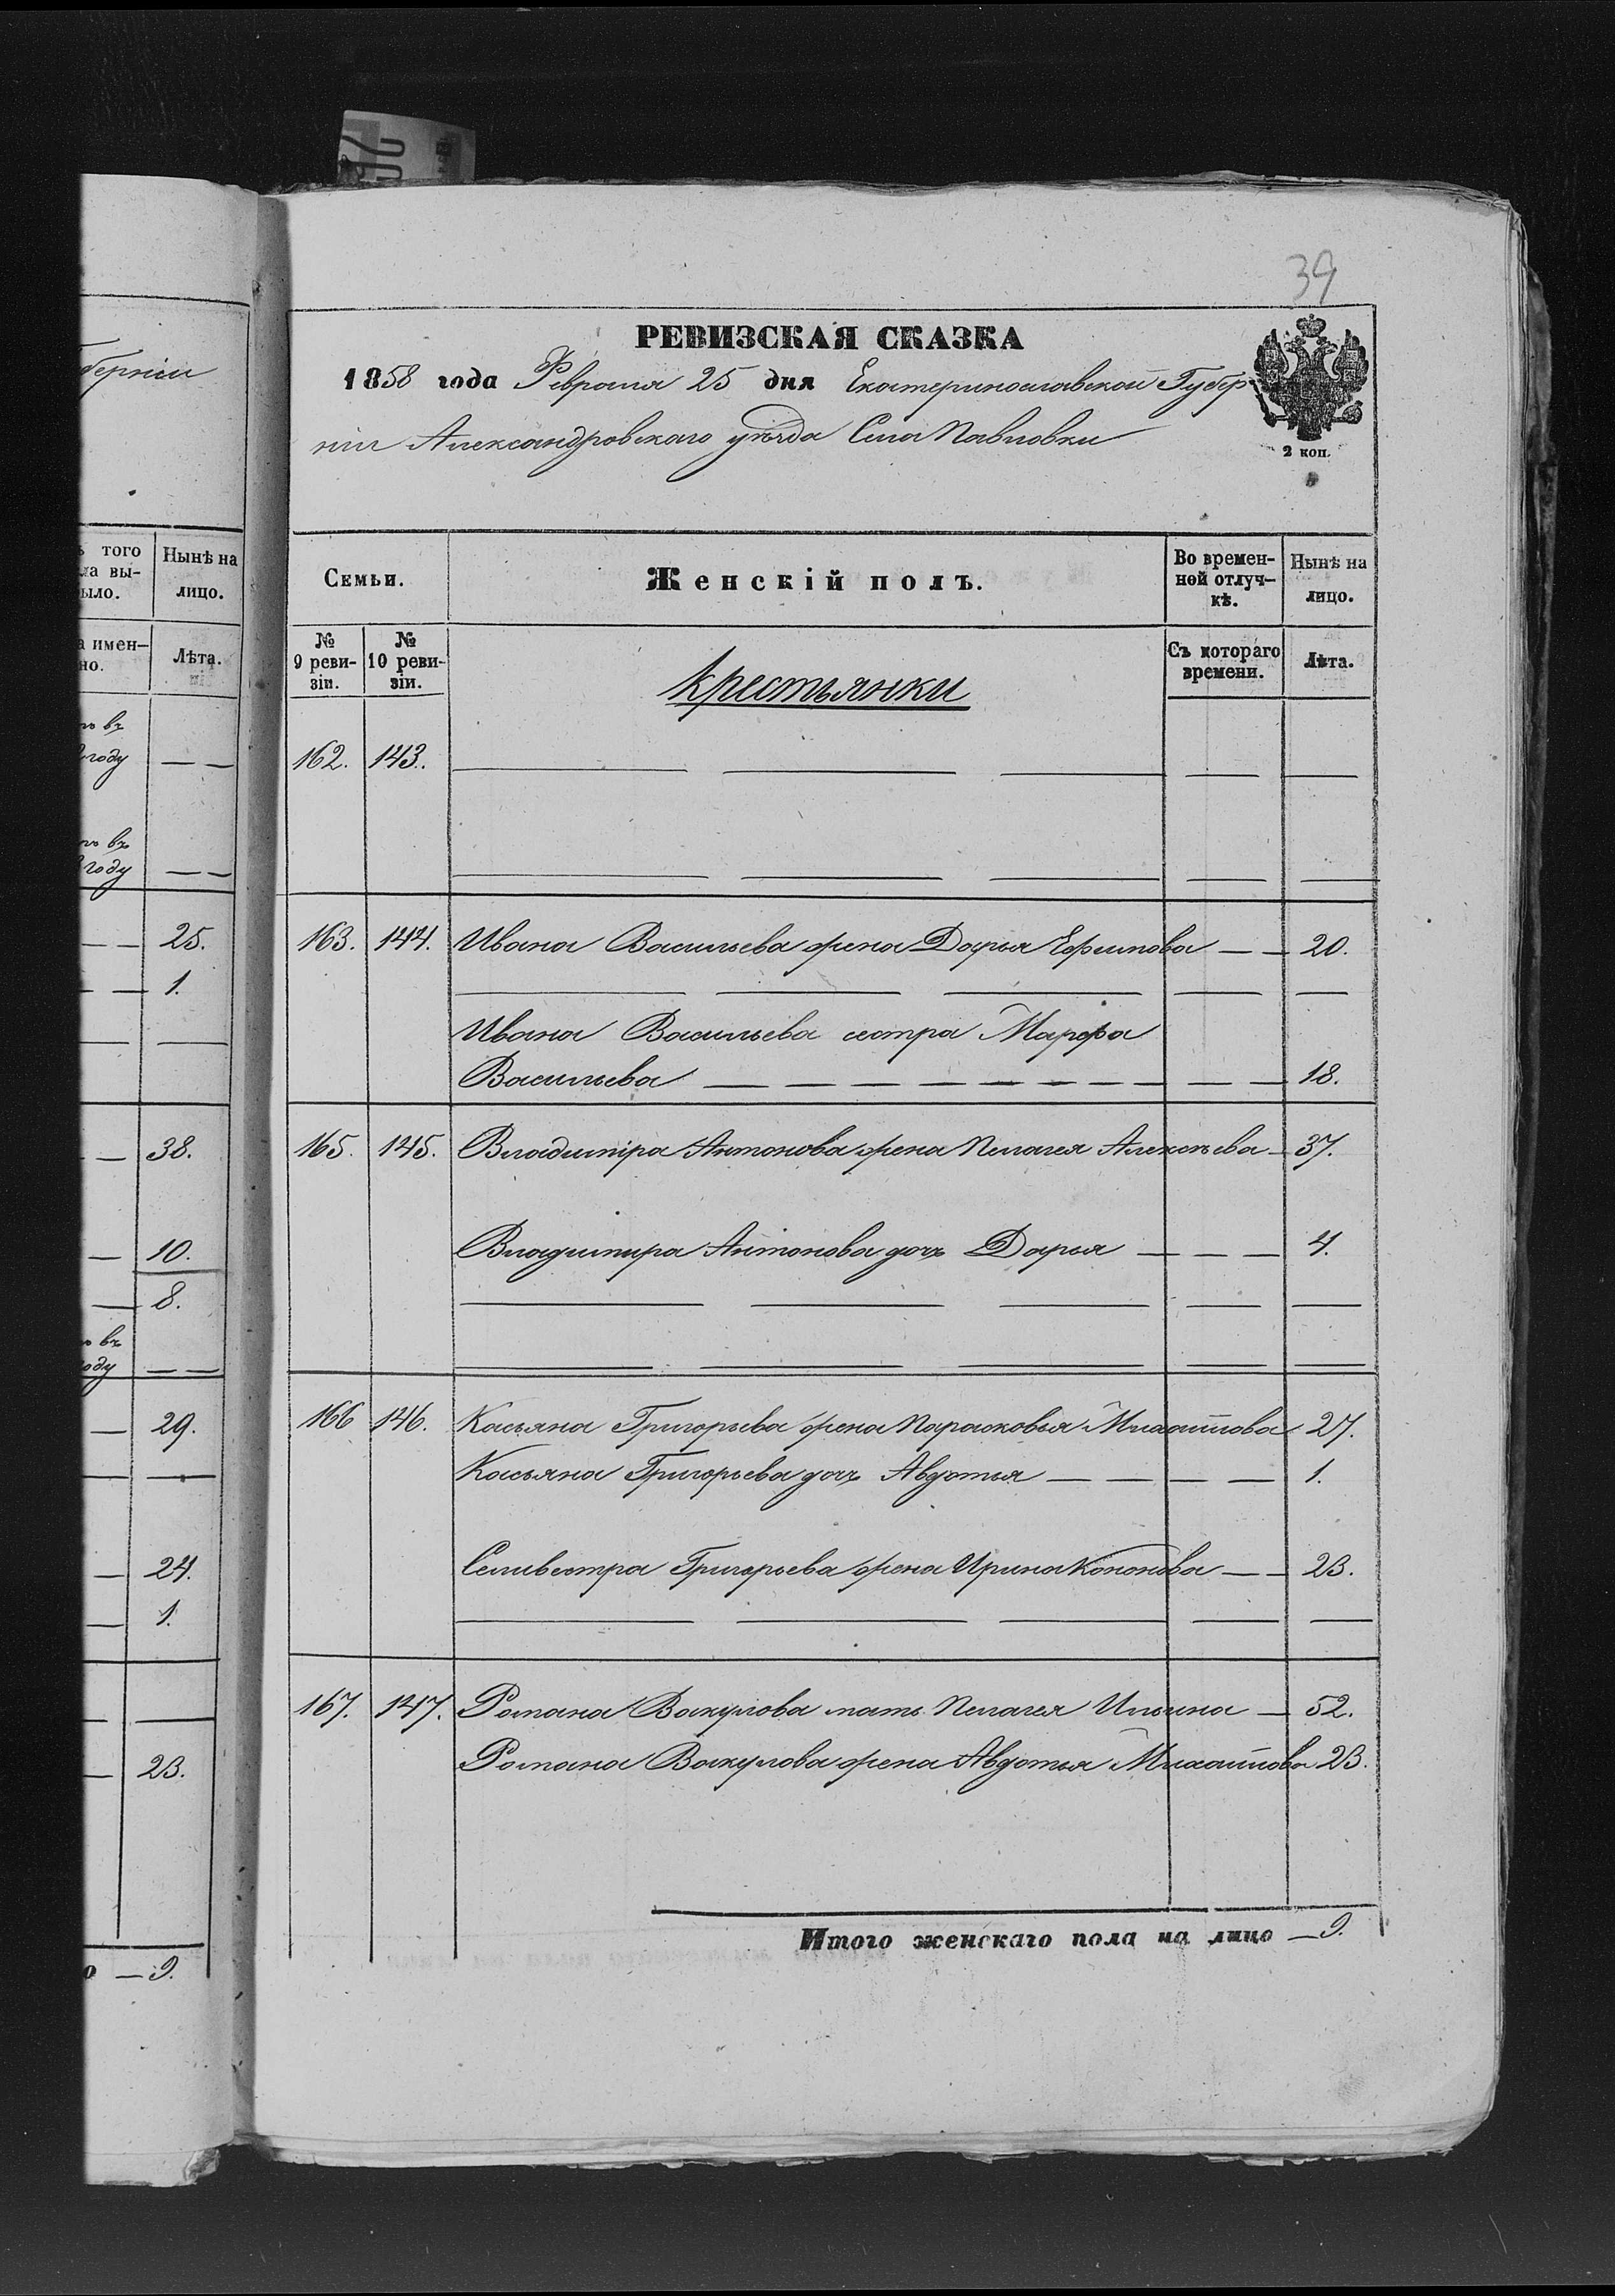 39
РЕВИЗСКАЯ СКАЗКА
1858 года Февраля 25 дня Екатеринославской Губер
ніи Александровскаго уѣзда Села Павловки
2 коп.
берніи
ъ того
ла вы-
ыло.
Нынѣ на
лицо.
а имен-
но.
Лѣта.
ъ въ
году
— —
ъ въ
году
— —
— — 25.
— — 1.
— 38.
— 10.
— 8.
ъ въ
оду
— —
— 29.
— —
— 24.
— 1.
— 23.
о — 9.
Семьи.
Женскій полъ.
Во времен-
ной отлуч-
кѣ.
Нынѣ на
лицо.
№
9 реви-
зіи.
№
10 реви-
зіи.
Крестьянки
Съ котораго
времени.
Лѣта.
162. 143.
163. 144. Ивана Васильева жена Дарья Ефимова — — 20.
Ивана Васильева сестра Марфа
Васильева — — — — — — — — — — 18.
165. 145. Владиміра Антонова жена Пелагея Алексѣева — 37.
Владимира Антонова дочь Дарья — — — 4.
166 146. Касьяна Григорьева жена Парасковья Михайлова 27.
Касьяна Григорьева дочь Авдотья — — — — 1.
Селивестра Григорьева жена Ирина Кононова — — 23.
167. 147. Романа Вакулова мать Пелагея Ильина — 52.
Романа Вакулова жена Авдотья Михайлова 23.
Итого женскаго пола на лицо — 9.